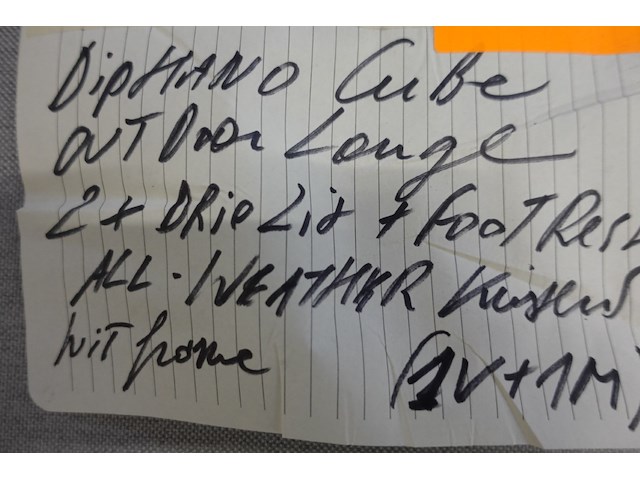 DipHANO Cube
OUTDoor Lounge
2 + DRie Zit + FooT Rest
ALL-WEATHER Kussens
WiT frame
(1V+1M)